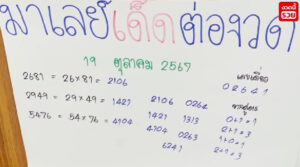 งวดนี้รวย
มาเลย์เด็ดต่องวด
19 ตุลาคม 2567
2681 = 26×81 = 2106
2949 = 29×49 = 1421 2106 0264
5476 = 54×76 = 4104 1421 1313
4704 0263
6241
เลขเดี่ยว
02641
จากสูตร
0+1 = 1
2+1 = 3
1+0 = 1
2+1 = 3